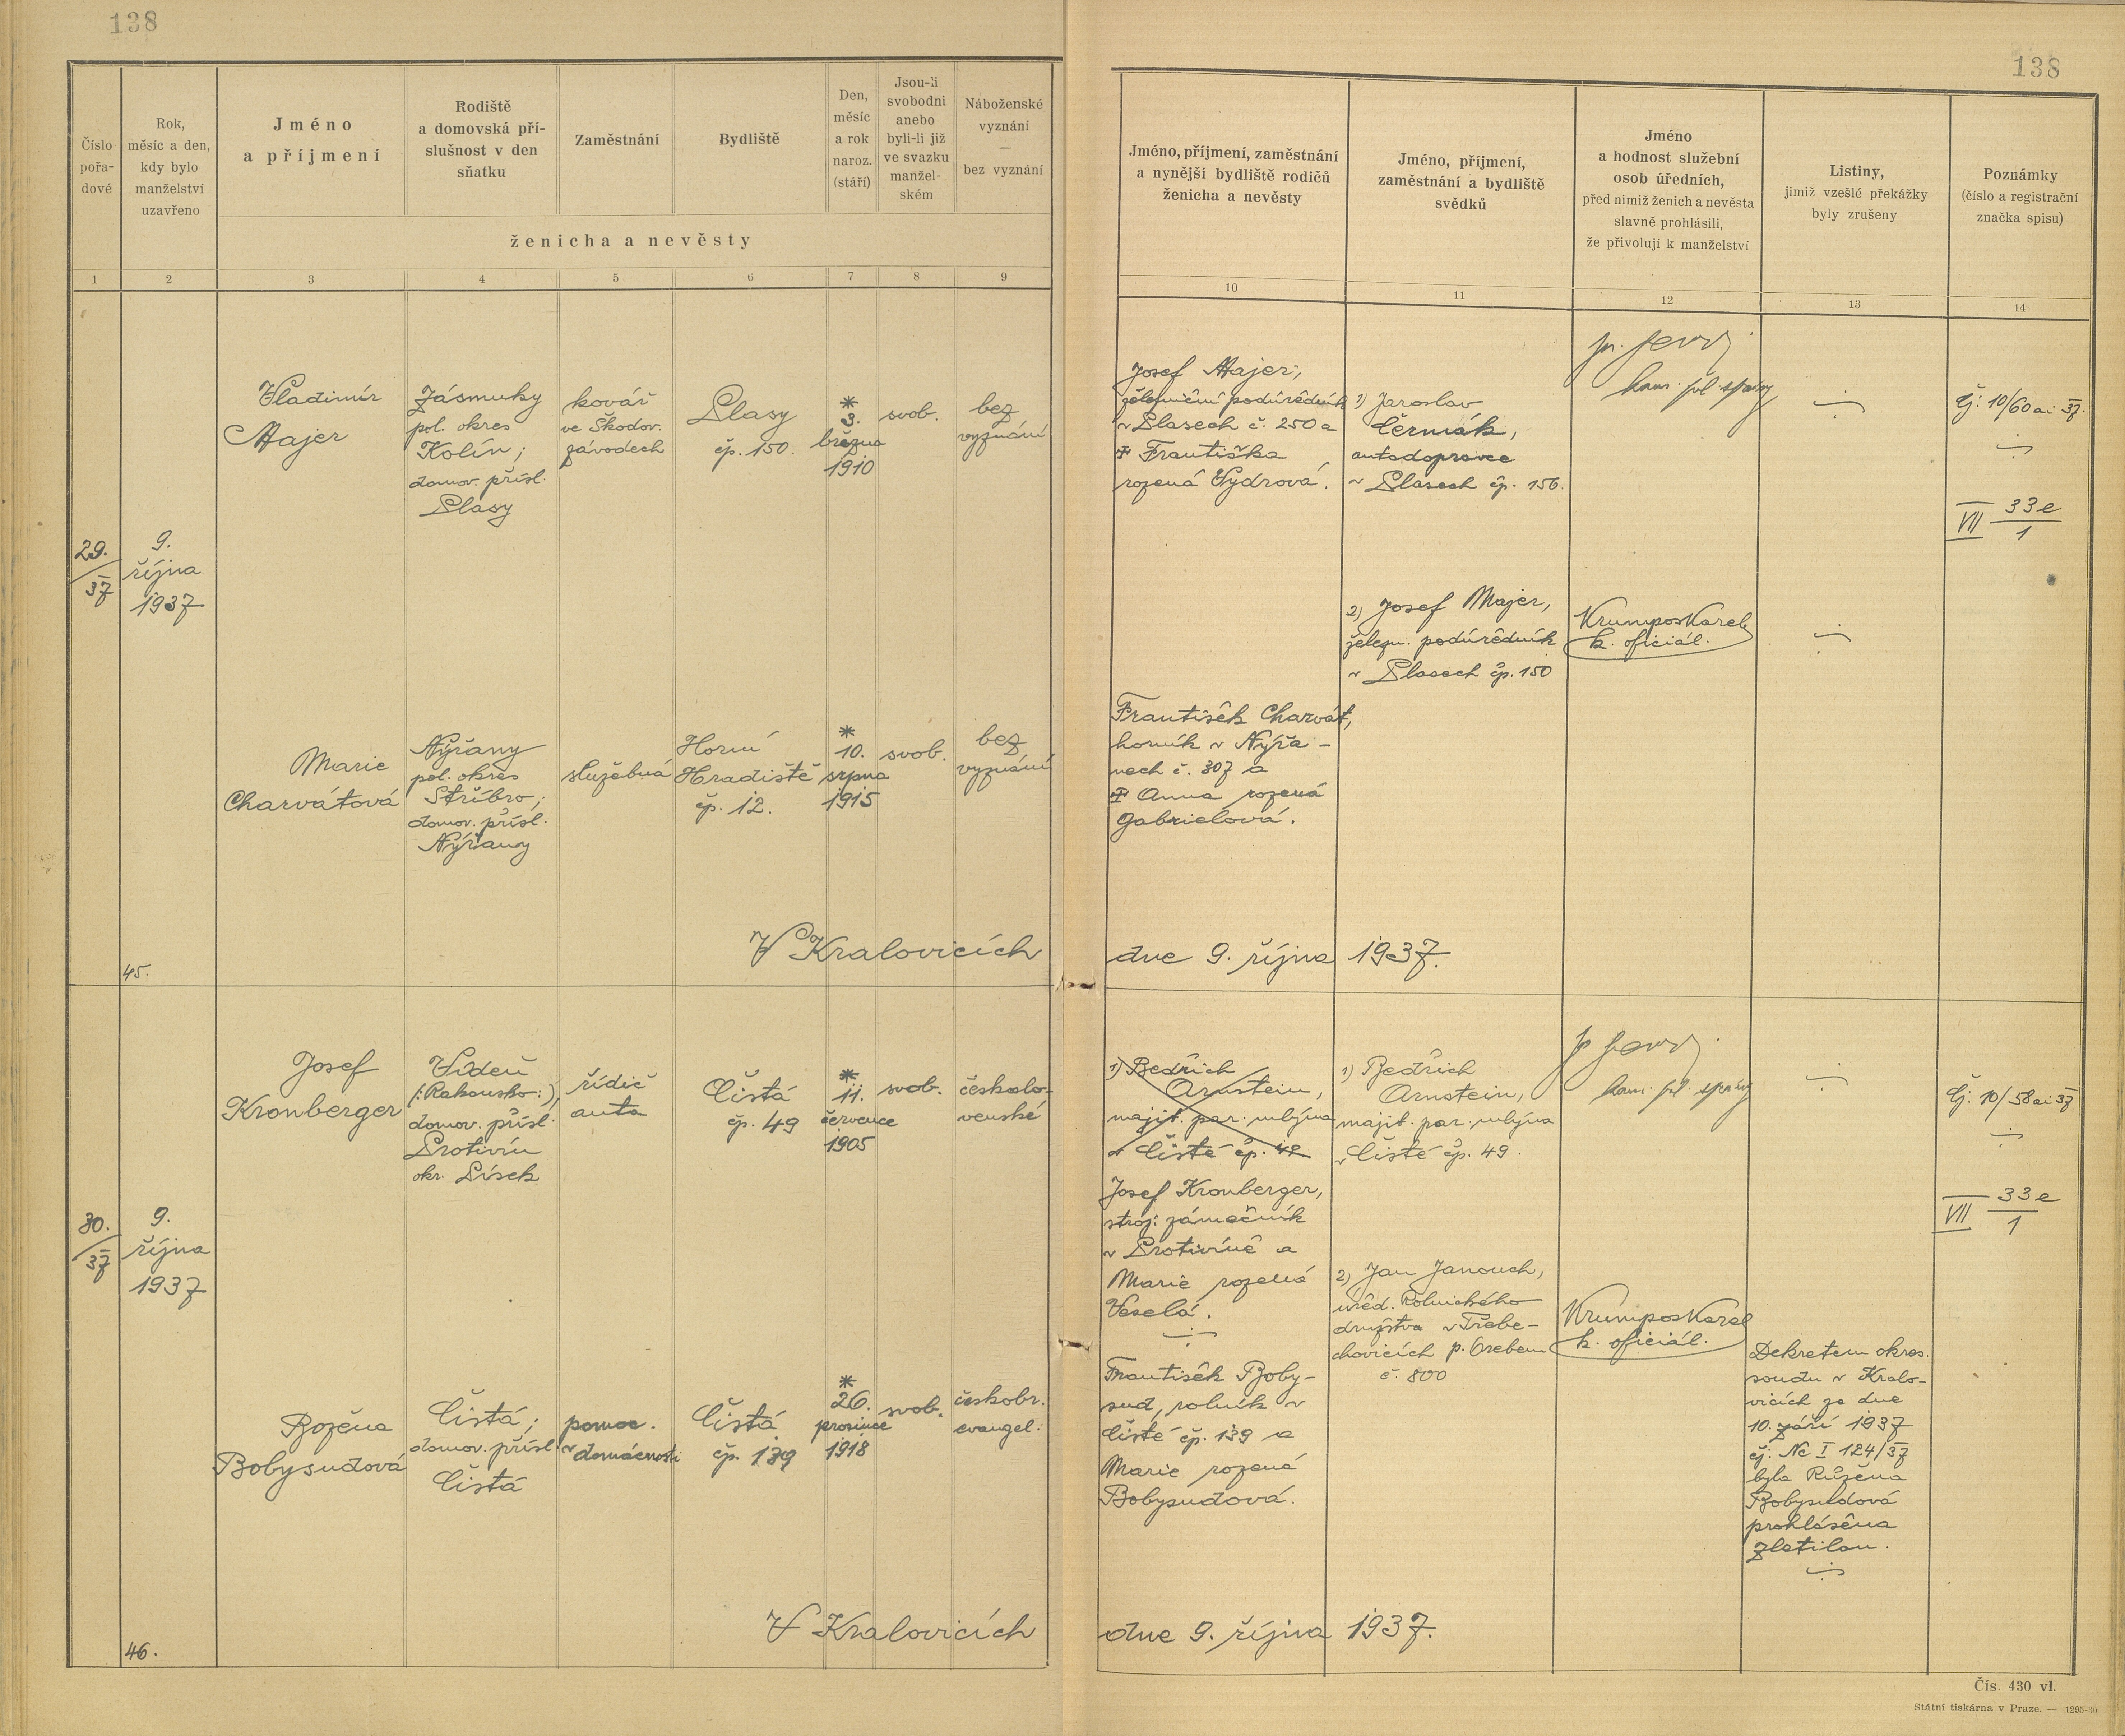 138
138
Číslo
pořa-
dové
Rok,
měsíc a den,
kdy bylo
manželství
uzavřeno
Jméno
a příjmení
Rodiště
a domovská pří-
slušnost v den
sňatku
Zaměstnání
Bydliště
Den,
měsíc
a rok
naroz.
(stáří)
Jsou-li
svobodni
anebo
byli-li již
ve svazku
manžel-
ském
Náboženské
vyznání
—
bez vyznání
ženicha a nevěsty
Jméno, příjmení, zaměstnání
a nynější bydliště rodičů
ženicha a nevěsty
Jméno, příjmení,
zaměstnání a bydliště
svědků
Jméno
a hodnost služební
osob úředních,
před nimiž ženich a nevěsta
slavně prohlásili,
že přivolují k manželství
Listiny,
jimiž vzešlé překážky
byly zrušeny
Poznámky
(číslo a registrační
značka spisu)
1 2 3 4 5 6 7 8 9
10 11 12 13 14
29.
37
9.
října
1937
Vladimír
Majer
Zásmuky
pol. okres
Kolín;
domov. přísl.
Plasy
kovář
ve Škodov.
závodech
Plasy
čp. 150.
*
3.
března
1910
svob.
bez
vyznání
Josef Majer,
železniční podúředník
v Plasech č. 250 a
Františka
rozená Vydrová.
1) Jaroslav
Čermák,
autodopravce
v Plasech čp. 156.
čj: 10/60 ai 37.
VII 33e
1
2) Josef Majer,
železn. podúředník
v Plasech čp. 150
Krumpos Karel
k. oficiál.
Marie
Charvátová
Nýřany
pol. okres
Stříbro;
domov. přísl.
Nýřany
služebná
Horní
Hradiště
čp. 12.
*
10.
srpna
1915
svob.
bez
vyznání
František Charvát,
horník v Nýřa-
nech č. 307 a
Anna rozená
Gabrielová.
45.
V Kralovicích
dne 9. října 1937.
30.
37
9.
října
1937
Josef
Kronberger
Vídeň
(:Rakousko:),
domov. přísl.
Protivín
okr. Písek
řidič
auta
Čistá
čp. 49
*
11.
července
1905
svob.
českoslo-
venské
1) Bedřich
Arnstein,
majit. par. mlýna
v Čisté čp. 49
Josef Kronberger,
stroj. zámečník
v Protivíně a
Marie rozená
Veselá.
1) Bedřich
Arnstein,
majit. par. mlýna
v Čisté čp. 49.
čj: 10/58 ai 37
VII 33e
1
2) Jan Janouch,
úřed. Rolnického
družstva v Třebe-
chovicích p. Orebem
č. 800
Krumpos Karel
k. oficiál.
Božena
Bobysudová
Čistá;
domov. přísl.
Čistá
pomoc.
v domácnosti
Čistá
čp. 139
*
26.
prosince
1918
svob.
českobr.
evangel.
František Boby-
sud, rolník v
Čisté čp. 139 a
Marie rozená
Bobysudová.
Dekretem okres.
soudu v Kralo-
vicích ze dne
10. září 1937
čj: Nc I 124/37
byla Růžena
Bobysudová
prohlášena
zletilou.
46.
V Kralovicích
dne 9. října 1937.
Čís. 430 vl.
Státní tiskárna v Praze. — 1295-30